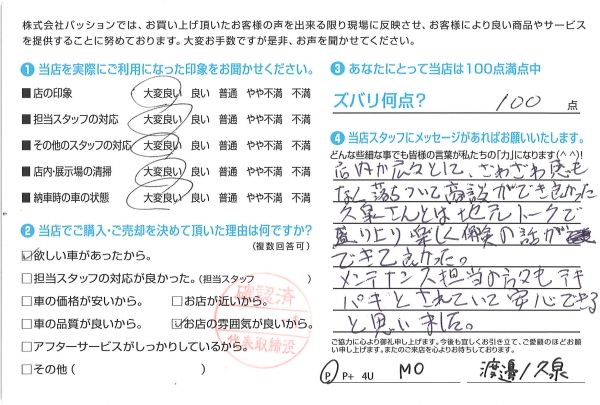 株式会社パッションでは、お買い上げ頂いたお客様の声を出来る限り現場に反映させ、お客様により良い商品やサービス
を提供することに努めております。大変お手数ですが是非、お声を聞かせてください。
1 当店を実際にご利用になった印象をお聞かせください。
■店の印象 大変良い 良い 普通 やや不満 不満
■担当スタッフの対応 大変良い 良い 普通 やや不満 不満
■その他のスタッフの対応 大変良い 良い 普通 やや不満 不満
■店内・展示場の清掃 大変良い 良い 普通 やや不満 不満
■納車時の車の状態 大変良い 良い 普通 やや不満 不満
2 当店でご購入・ご売却を決めて頂いた理由は何ですか?
(複数回答可)
☑欲しい車があったから。
□担当スタッフの対応が良かった。(担当スタッフ )
□車の価格が安いから。 □お店が近いから。
□車の品質が良いから。 ☑お店の雰囲気が良いから。
□アフターサービスがしっかりしているから。
□その他( )
確認済
代表取締役
3 あなたにとって当店は100点満点中
ズバリ何点? 100 点
4 当店スタッフにメッセージがあればお願いいたします。
どんな些細な事でも皆様の言葉が私たちの「力」になります(^^)!
店内が広々として、さわざわ感も
なく落ちついて商談ができ良かった
久泉さんとは地元トークで
盛り上り楽しく保険の話が
できて良かった。
メンテナンス担当の方々もテキ
パキとされていて安心できる
と思いました。
ご協力に心より御礼申し上げます。今後も宜しくお引き立て、ご愛顧のほどお願
い申し上げます。またのご来店を心よりお待ちしております。
P P+ 4U MO 渡邉/久泉